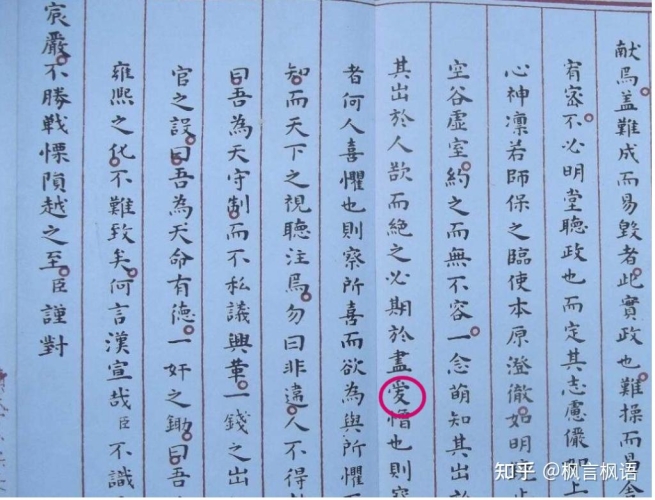 献焉盖難成而易毀者此實政也難操而易舍
宥密不必明堂聽政也而定其志慮儼如上
心神凜若師保之臨使本原澄徹如明鏡止
空谷虛室約之而無不容一念萌知其出於
其出於人欲而絕之必期於盡愛憎也則察
者何人喜懼也則察所喜而欲為與所懼而
知而天下之視聽注焉勿曰非違人不得
曰吾為天守制而不私議興革一錢之出
官之設曰吾為天命有德一奸之鋤曰吾
雍熙之化不難致矣何言漢宣哉臣不識
宸嚴不勝戰慄隕越之至臣謹對
知乎 @枫言枫语